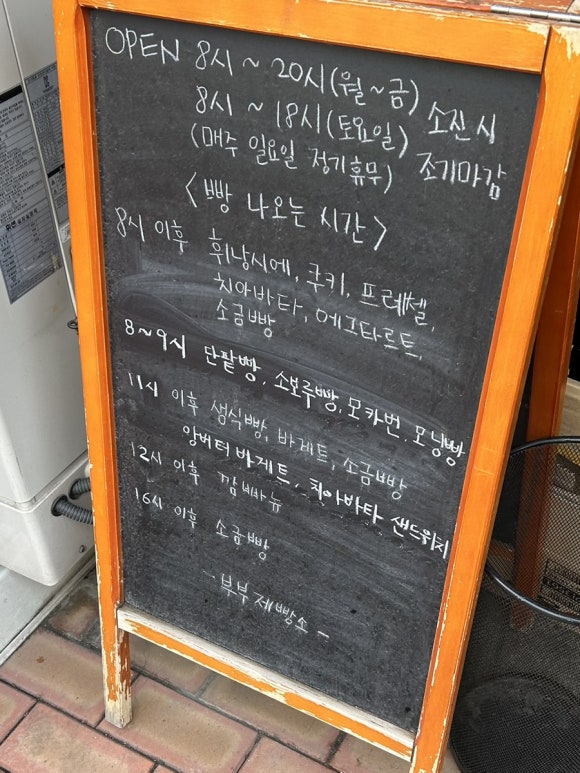 OPEN 8시 ~ 20시(월~금)
8시 ~ 18시(토요일) 소진시
(매주 일요일 정기휴무) 조기마감
<빵 나오는 시간>
8시 이후 휘낭시에, 쿠키, 프레첼,
치아바타, 에그타르트,
소금빵
8~9시 단팥빵, 소보루빵, 모카번, 모닝빵
11시 이후 생식빵, 바게트, 소금빵
앙버터 바게트, 치아바타 샌드위치
12시 이후 깜빠뉴
16시 이후 소금빵
- 부부제빵소 -